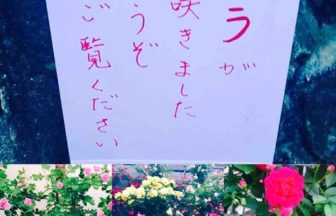 ラが
咲きました
うぞ
ご覧ください